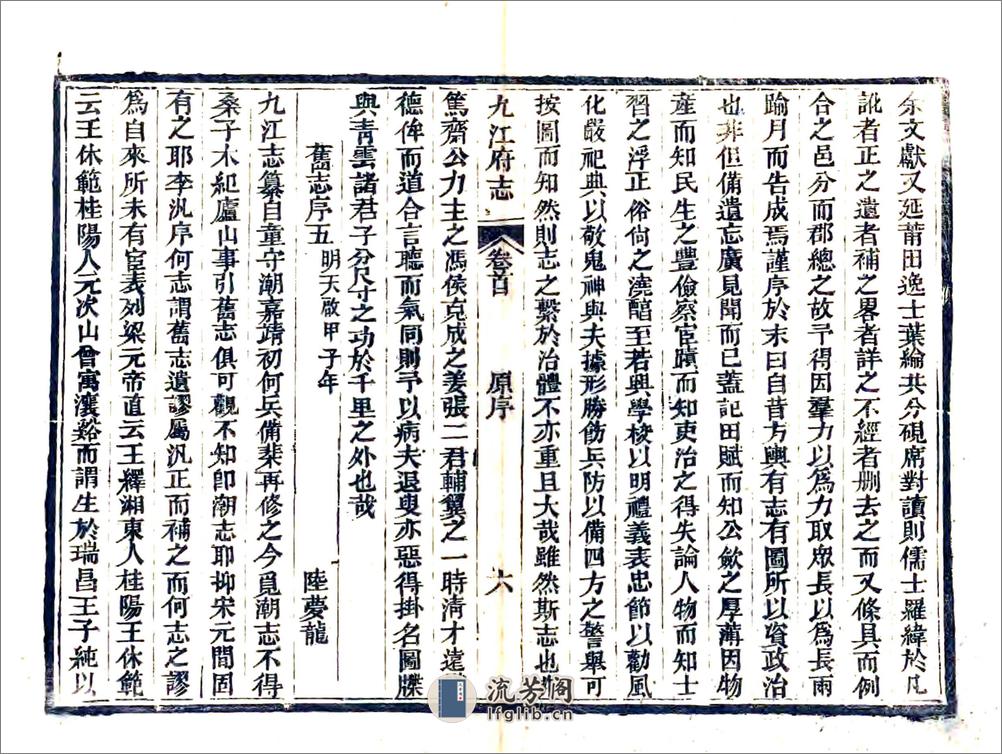 余文獻又延莆田逸士葉綸共分硯席對讀則儒士羅緯於凡
訛者正之遺者補之畧者詳之不經者刪去之而又條具而例
合之邑分而郡總之故予得因羣力以爲力取眾長以爲長兩
踰月而告成焉謹序於末曰自昔方輿有志有圖所以資政治
也非但備遺忘廣見聞而已蓋記田賦而知公歛之厚薄因物
產而知民生之豐儉察宦蹟而知吏治之得失論人物而知士
習之浮正俗尙之澆醕至若興學校以明禮義表忠節以勸風
化嚴祀典以敬鬼神與夫據形勝飭兵防以備四方之警舉可
按圖而知然則志之繫於治體不亦重且大哉雖然斯志也
九江府志
卷首
原序
六
篤齋公力主之馮侯克成之姜張二君輔翼之一時淸才遠
德侔而道合言聽而氣同則予以病夫退叟亦惡得掛名圖牒
與靑雲諸君子分尺寸之功於千里之外也哉
舊志序五 明天啟甲子年 陸夢龍
九江志纂自童守潮嘉靖初何兵備棐再修之今覓潮志不得
桑子木紀廬山事引舊志俱可觀不知卽潮志耶抑宋元間固
有之耶李汎序何志謂舊志遺謬屬汎正而補之而何志之謬
爲自來所未有宦表列梁元帝直云王繹湘東人桂陽王休範
云王休範桂陽人元次山曾寓瀼谿而謂生於瑞昌王子純以
流芳阁
lfglib.cn